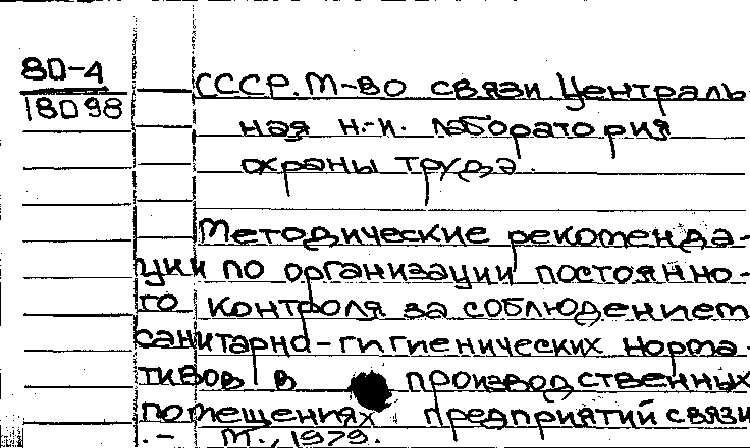 80-4
18098
СССР. М-во связи Централь
ная н.-и. лаборатория
охраны труда.
Методические рекоменда-
ции по организации постоянно-
го контроля за соблюдением
санитарно-гигиенических норма-
тивов в производственных
помещениях предприятий связи
.- М., 1979.